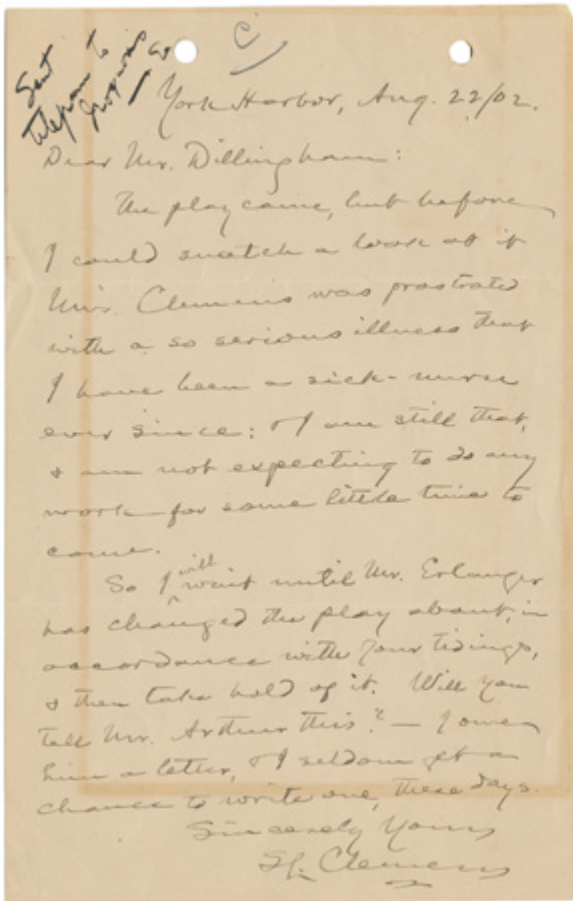 Sent
telegram to
C
York Harbor, Aug. 22/02.
Dear Mr. Dillingham:
The play came, but before
I could snatch a look at it
Mrs. Clemens was prostrated
with a so serious illness that
I have been a sick-nurse
ever since; & I am still that,
& am not expecting to do any
work for some little time to
come.
So I will wait until Mr. Erlanger
has changed the play about, in
accordance with your tidings,
& then take hold of it. Will you
tell Mr. Arthur this? — I owe
him a letter, & I seldom get a
chance to write one, these days.
Sincerely Yours
SL. Clemens